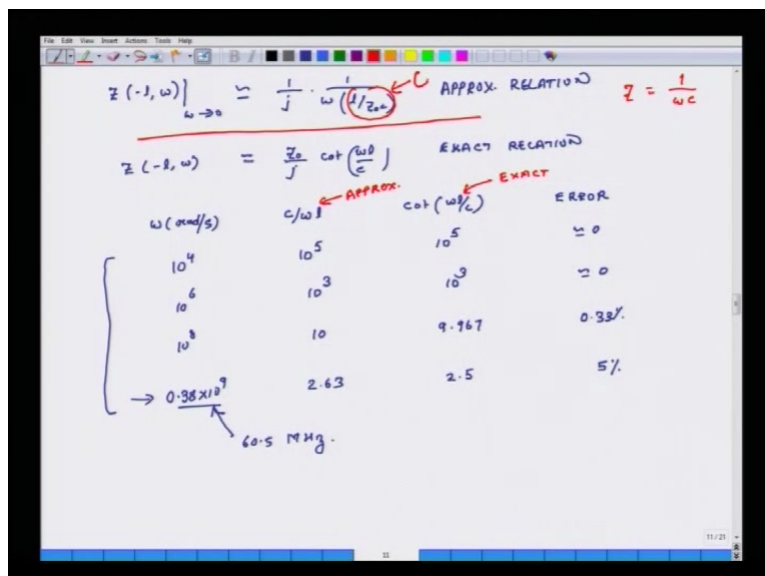 File Edit View Insert Actions Tools Help
B I
z(-l, ω)|ω→0 ≃ 1/j · 1/ω(l/Z₀c) C APPROX. RELATION Z = 1/ωc
z(-l, ω) = Z₀/j cot(ωl/c) EXACT RELATION
ω(rad/s) c/ωl APPROX. cot(ωl/c) EXACT ERROR
10⁴ 10⁵ 10⁵ ≃ 0
10⁶ 10³ 10³ ≃ 0
10⁸ 10 9.967 0.33%.
→ 0.38×10⁹ 2.63 2.5 5%.
60.5 MHz.
11/21
11